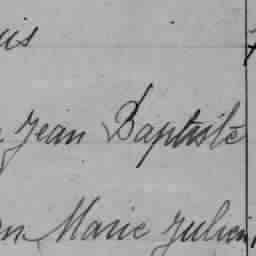 Jean Baptiste
Marie Julien